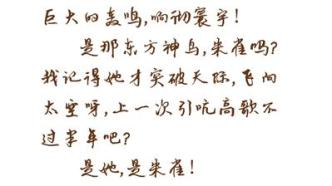 巨大的轰鸣,响彻寰宇!
是那东方神鸟,朱雀吗?
我记得她才突破天际,飞向
太空呀,上一次引吭高歌不
过半年吧?
是她,是朱雀!